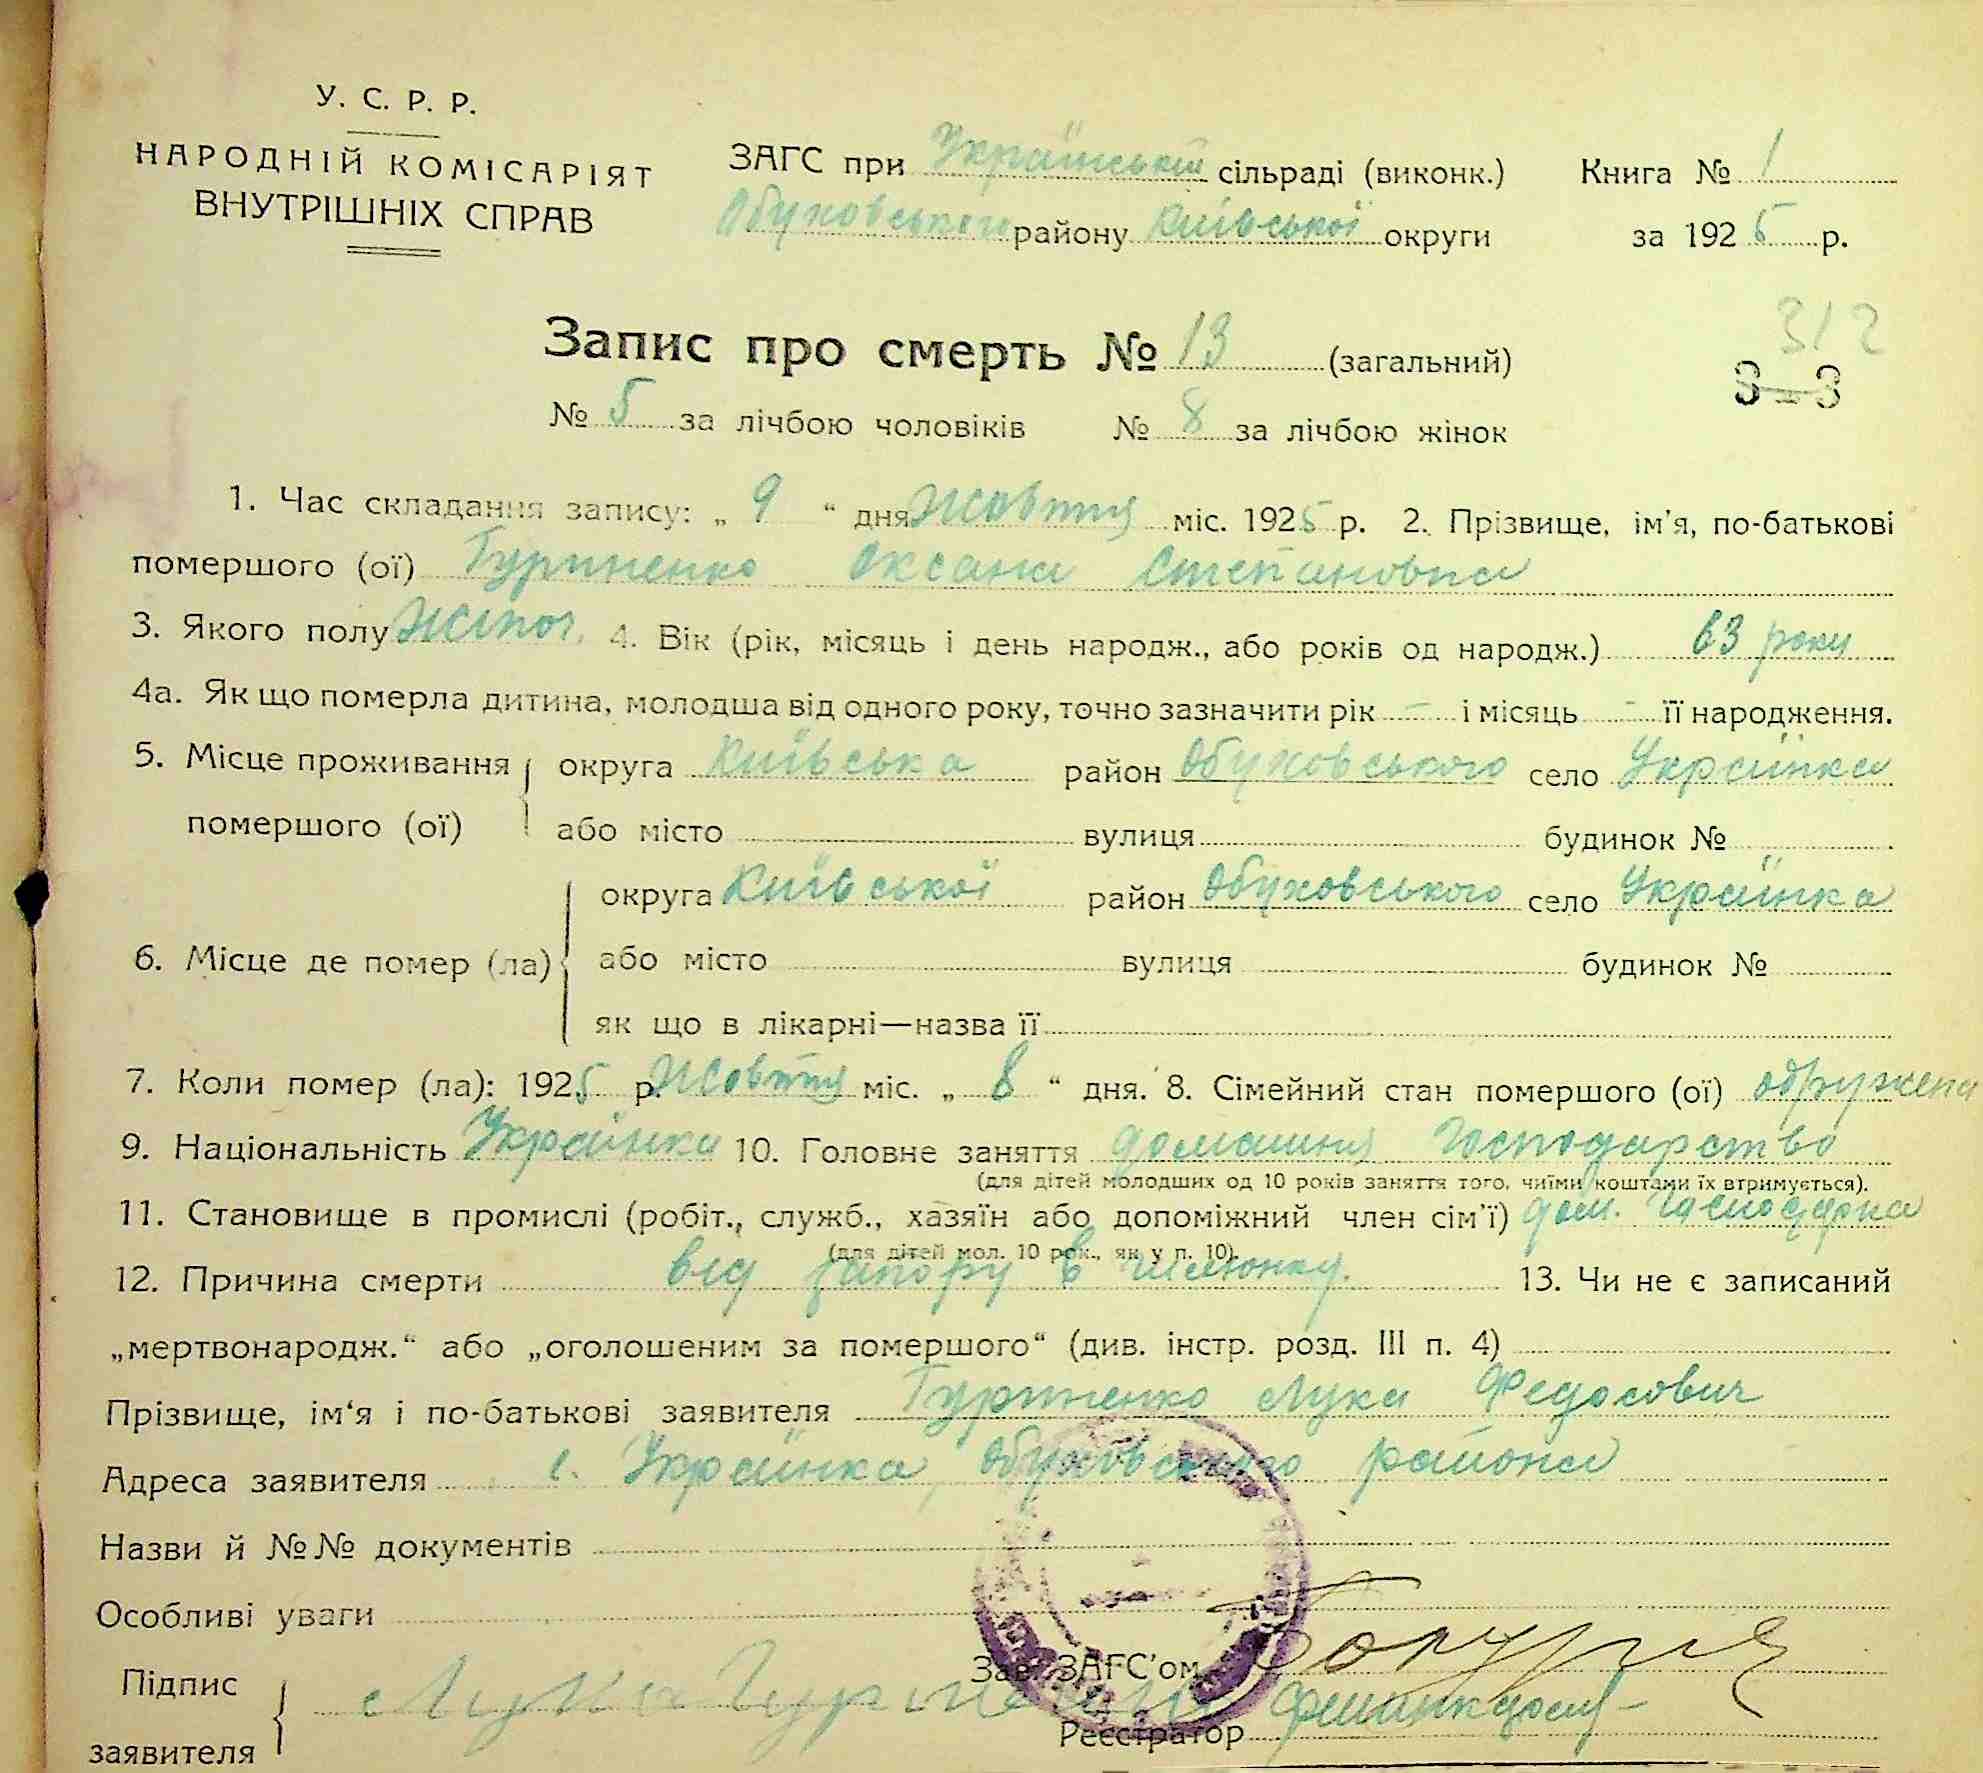 У. С. Р. Р.
НАРОДНІЙ КОМІСАРІЯТ
ВНУТРІШНІХ СПРАВ
ЗАГС при Українській сільраді (виконк.)
Обуховського району Київської округи
Книга № 1
за 1925 р.
312
3-3
Запис про смерть № 13 (загальний)
№ 5 за лічбою чоловіків № 8 за лічбою жінок
1. Час складання запису: „ 9 “ дня Жовтня міс. 1925 р. 2. Прізвище, ім'я, по-батькові
помершого (ої) Гуртненко Оксана Степановна
3. Якого полу Жіноч. 4. Вік (рік, місяць і день народж., або років од народж.) 63 роки
4а. Як що померла дитина, молодша від одного року, точно зазначити рік - і місяць - її народження.
5. Місце проживання помершого (ої) округа Київська район Обуховського село Українка
або місто вулиця будинок №
6. Місце де помер (ла) округа Київської район Обуховського село Українка
або місто вулиця будинок №
як що в лікарні—назва її
7. Коли помер (ла): 1925 р. Жовтня міс. „ 8 “ дня. 8. Сімейний стан помершого (ої) одружена
9. Національність Українка 10. Головне заняття домашня господарство
(для дітей молодших од 10 років заняття того, чиїми коштами їх втримується).
11. Становище в промислі (робіт., служб., хазяїн або допоміжний член сім'ї) дом. господарка
(для дітей мол. 10 рок., як у п. 10).
12. Причина смерти від запору в шлюнку. 13. Чи не є записаний
„мертвонародж.“ або „оголошеним за помершого“ (див. інстр. розд. III п. 4)
Прізвище, ім'я і по-батькові заявителя Гуртненко Лука Федосович
Адреса заявителя с. Українка, Обуховського района
Назви й №№ документів
Особливі уваги
Підпис заявителя Лука
Зав. ЗАГС'ом
Реєстратор